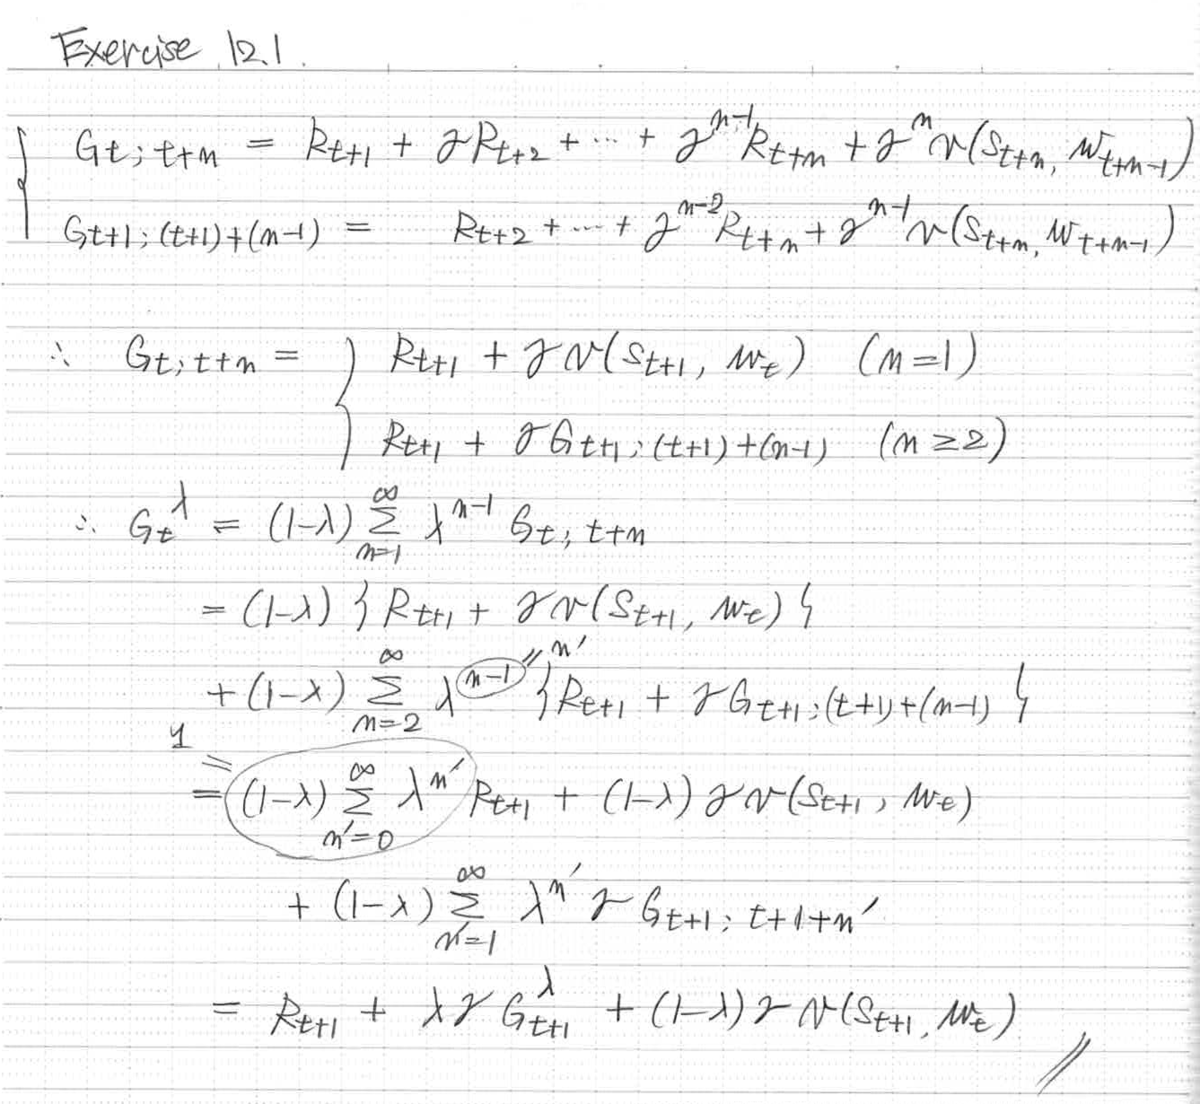 Exercise 12.1.
G_{t:t+n} = R_{t+1} + γR_{t+2} + ⋯ + γ^{n-1}R_{t+n} + γ^n v(S_{t+n}, w_{t+n-1})
G_{t+1:(t+1)+(n-1)} = R_{t+2} + ⋯ + γ^{n-2}R_{t+n} + γ^{n-1}v(S_{t+n}, w_{t+n-1})
∴ G_{t:t+n} = { R_{t+1} + γv(S_{t+1}, w_t) (n=1)
R_{t+1} + γG_{t+1:(t+1)+(n-1)} (n≥2)
∴ G_t^λ = (1-λ) Σ_{n=1}^∞ λ^{n-1} G_{t:t+n}
= (1-λ) { R_{t+1} + γv(S_{t+1}, w_t) }
+ (1-λ) Σ_{n=2}^∞ λ^{n-1} = n' { R_{t+1} + γG_{t+1:(t+1)+(n-1)} }
1 =
= (1-λ) Σ_{n'=0}^∞ λ^{n'} R_{t+1} + (1-λ) γv(S_{t+1}, w_t)
+ (1-λ) Σ_{n'=1}^∞ λ^{n'} γ G_{t+1:t+1+n'}
= R_{t+1} + λγ G_{t+1}^λ + (1-λ) γ v(S_{t+1}, w_t) //